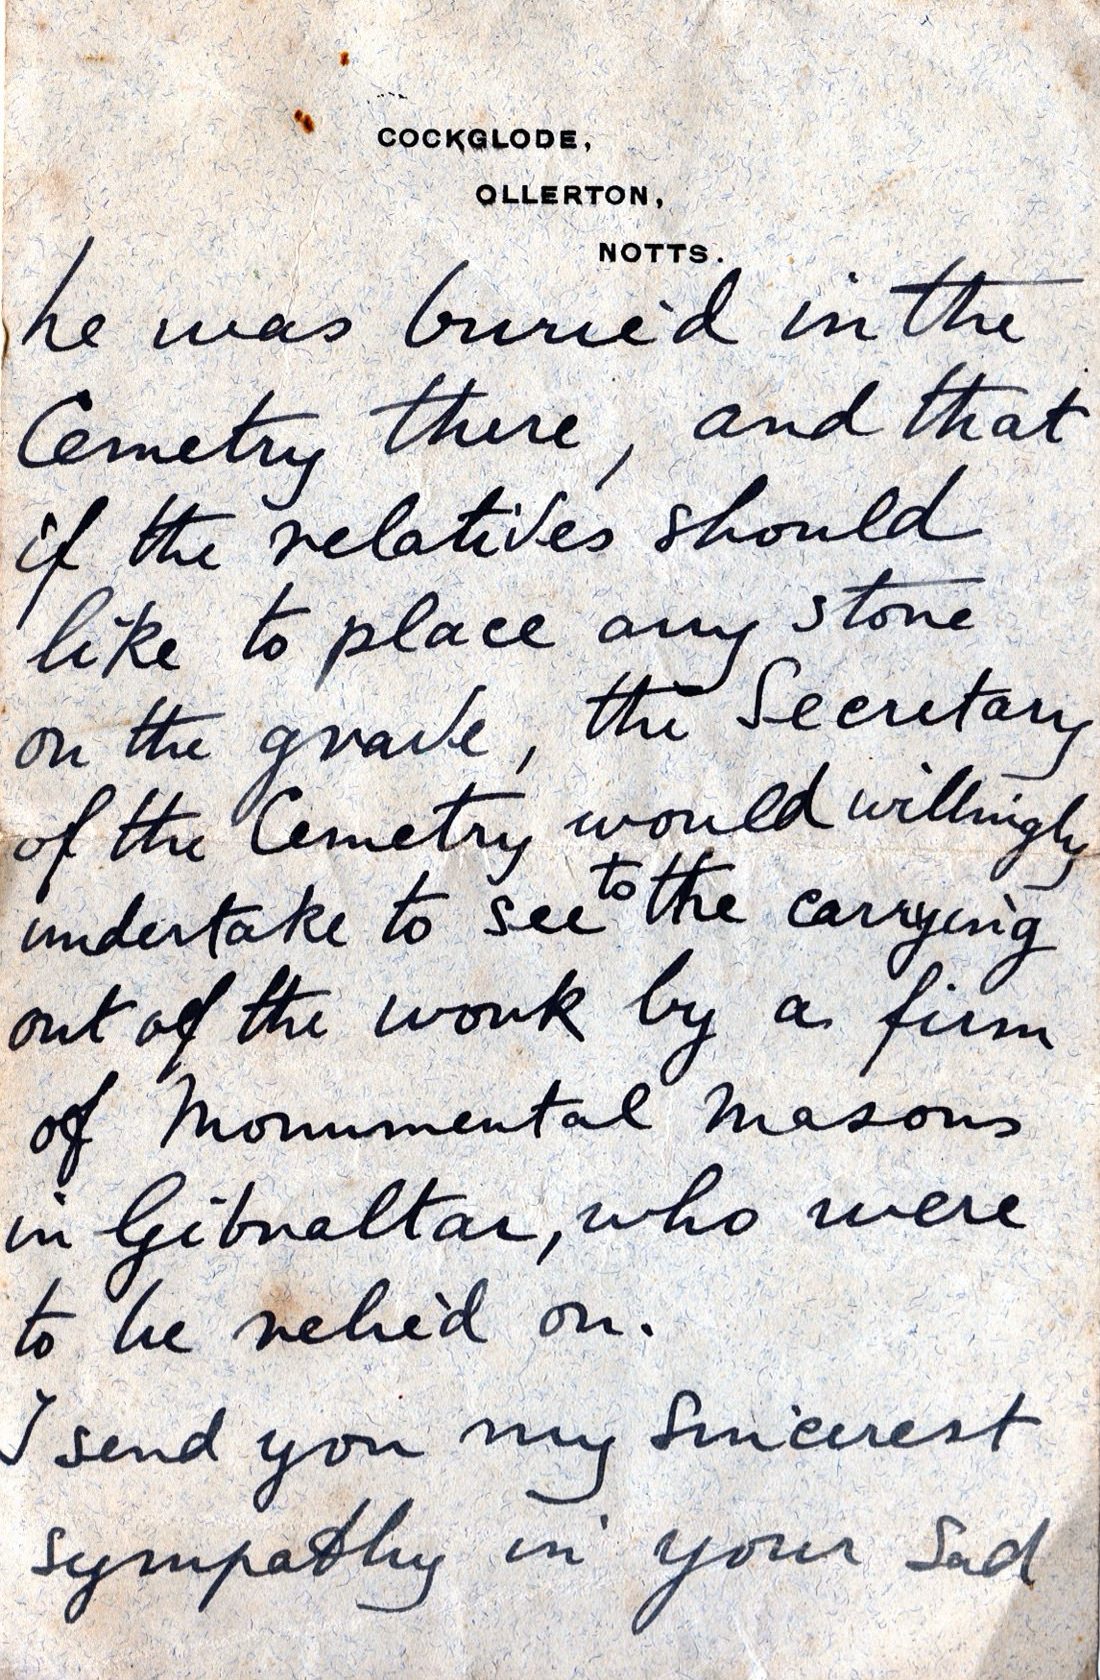 COCKGLODE,
OLLERTON,
NOTTS.
he was buried in the
Cemetry there, and that
if the relatives should
like to place any stone
on the grave, the Secretary
of the Cemetry would willingly
undertake to see to the carrying
out of the work by a firm
of Monumental Masons
in Gibraltar, who were
to be relied on.
I send you my sincerest
sympathy in your sad